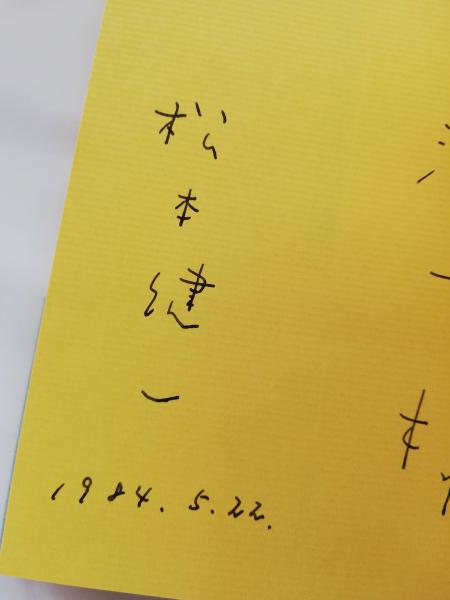 松本健一
1984.5.22.